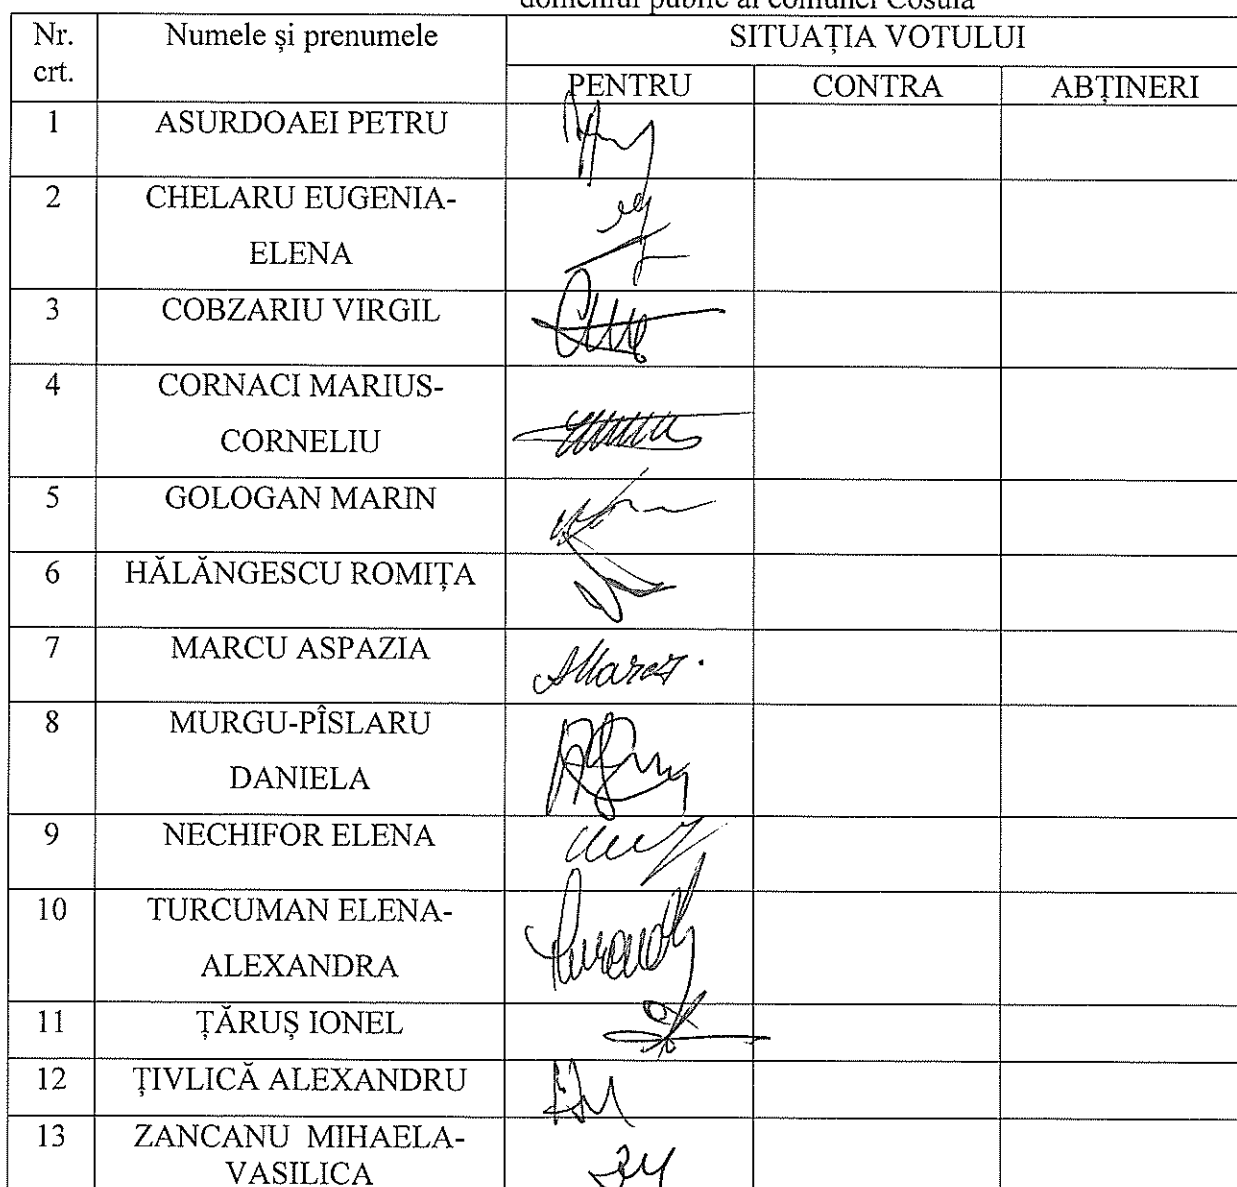 domeniul public al comunei Coșula
Nr. crt. Numele și prenumele SITUAȚIA VOTULUI
PENTRU CONTRA ABȚINERI
1 ASURDOAEI PETRU
2 CHELARU EUGENIA-
ELENA
3 COBZARIU VIRGIL
4 CORNACI MARIUS-
CORNELIU
5 GOLOGAN MARIN
6 HĂLĂNGESCU ROMIȚA
7 MARCU ASPAZIA
8 MURGU-PÎSLARU
DANIELA
9 NECHIFOR ELENA
10 TURCUMAN ELENA-
ALEXANDRA
11 ȚĂRUȘ IONEL
12 ȚIVLICĂ ALEXANDRU
13 ZANCANU MIHAELA-
VASILICA